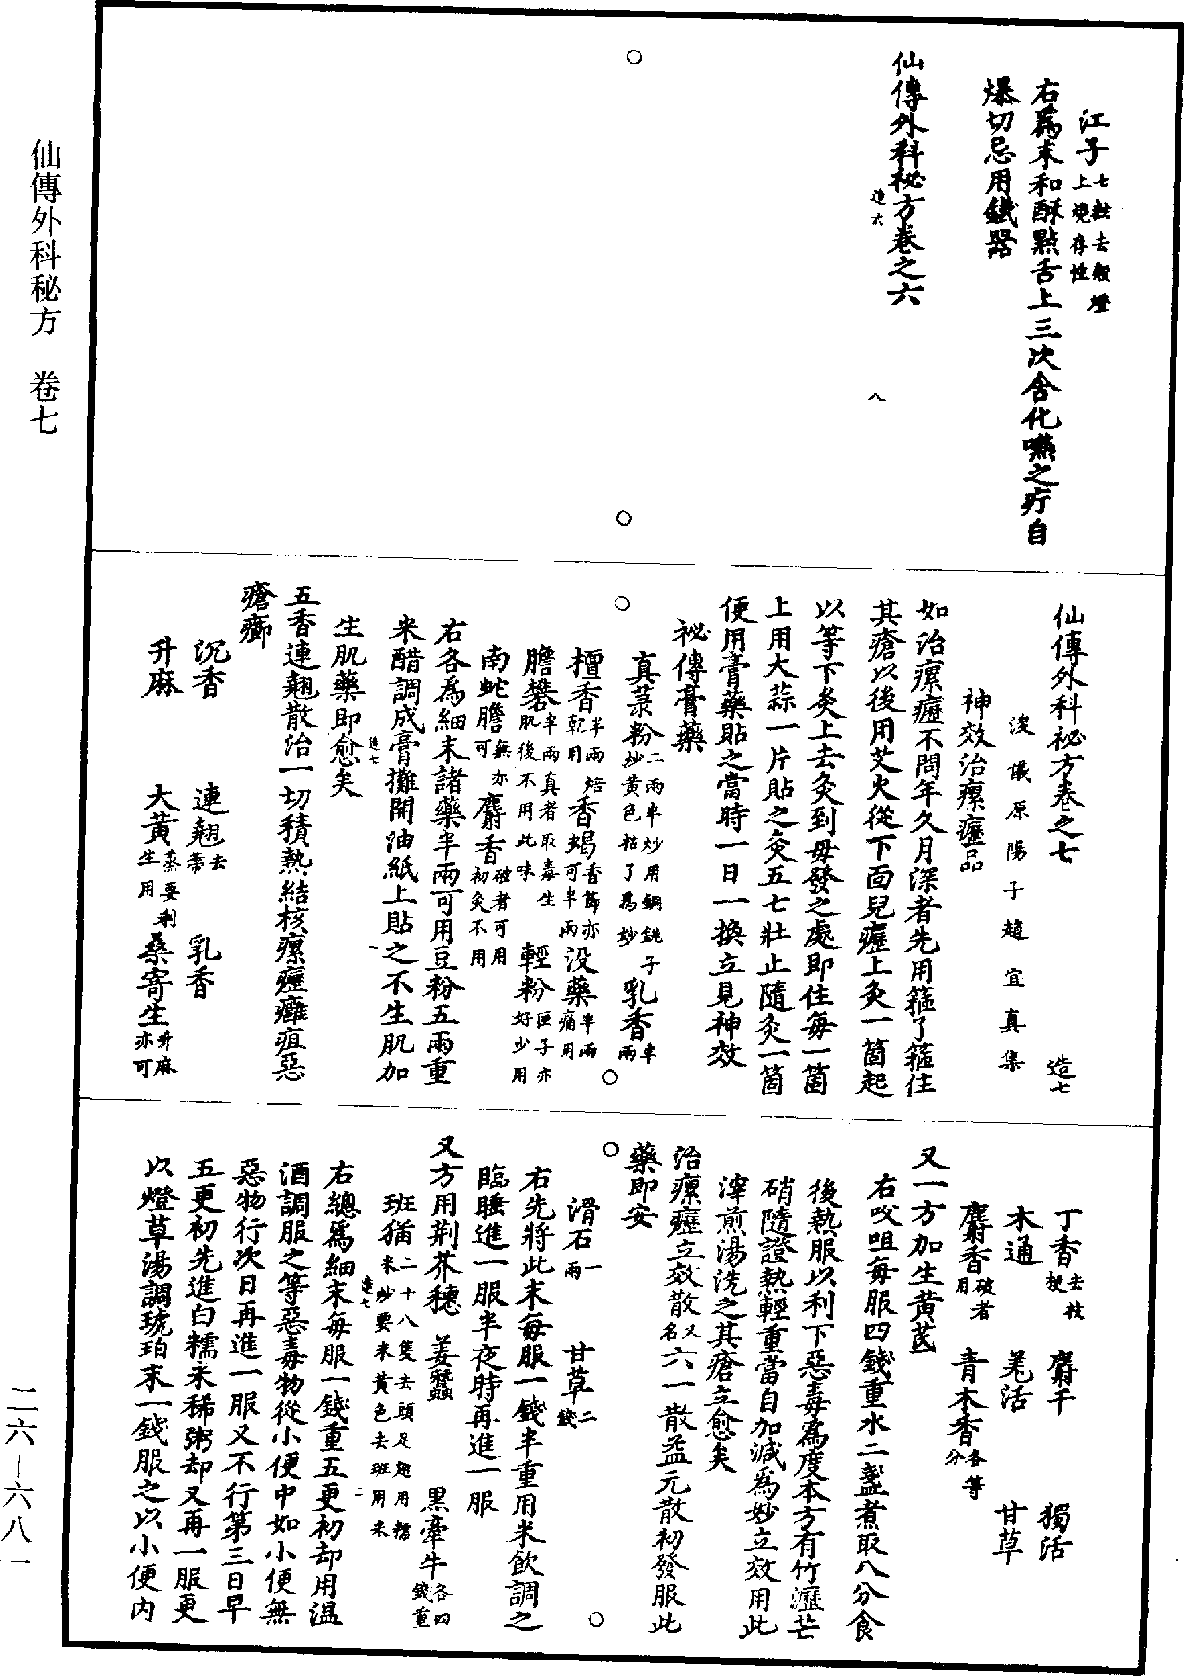 仙傳外科秘方　卷七
江子七粒去殼燈上燒存性
右爲末和酥點舌上三次含化嚥之疔自
爆切忌用鐵器
仙傳外科祕方卷之六
造六　八
仙傳外科祕方卷之七　造七
浚儀原陽子趙宜真集
神效治瘰癧品
如治瘰癧不問年久月深者先用箍了箍住
其瘡以後用艾火從下面兒癧上灸一箇起
以等下灸上去灸到毋發之處即住每一箇
上用大蒜一片貼之灸五七壯止隨灸一箇
便用膏藥貼之當時一日一換立見神效
祕傳膏藥
真菉粉二兩半炒用銅銚子炒黃色枯了爲妙　乳香半兩
檀香半兩焙乾用　香蝎香篩亦可半兩　没藥半兩痛用
膽礬半兩真者取毒生肌後不用此味　輕粉匣子亦好少用
南蛇膽無亦可　麝香破者可用初灸不用
右各爲細末諸藥半兩可用豆粉五兩重
米醋調成膏攤開油紙上貼之不生肌加
生肌藥即愈矣
造七　一
五香連翹散治一切積熱結核瘰癧癰疽惡
瘡癤
沉香　連翹去蒂　乳香
升麻　大黃蒸要剉生用　桑寄生升麻亦可
丁香去枝梗　麝干　獨活
木通　羌活　甘草
麝香破者用　青木香各等分
又一方加生黃茋
右㕮咀每服四錢重水二盞煮取八分食
後熱服以利下惡毒爲度本方有竹瀝芒
硝隨證熱輕重當自加減爲妙立效用此
滓煎湯洗之其瘡立愈矣
治瘰癧立效散又名六一散益元散初發服此
藥即安
滑石一兩　甘草二錢
右先將此末每服一錢半重用米飲調之
臨睡進一服半夜時再進一服
又方用荆芥穗　姜蠶　黑牽牛各四錢重
班猫二十八隻去頭足翅用糯米炒要米黃色去班用米
造七　二
右總爲細末每服一錢重五更初却用温
酒調服之等惡毒物從小便中如小便無
惡物行次日再進一服又不行第三日早
五更初先進白糯米稀粥却又再一服更
以燈草湯調琥珀末一錢服之以小便内
二六–六八一